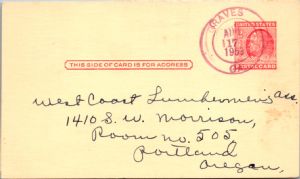 GRAVES
AUG
17
UNITED STATES
POSTAL CARD
THIS SIDE OF CARD IS FOR ADDRESS
West Coast Lumbermen's Ass.
1410 S. W. Morrison,
Room no. 505
Portland
Oregon,